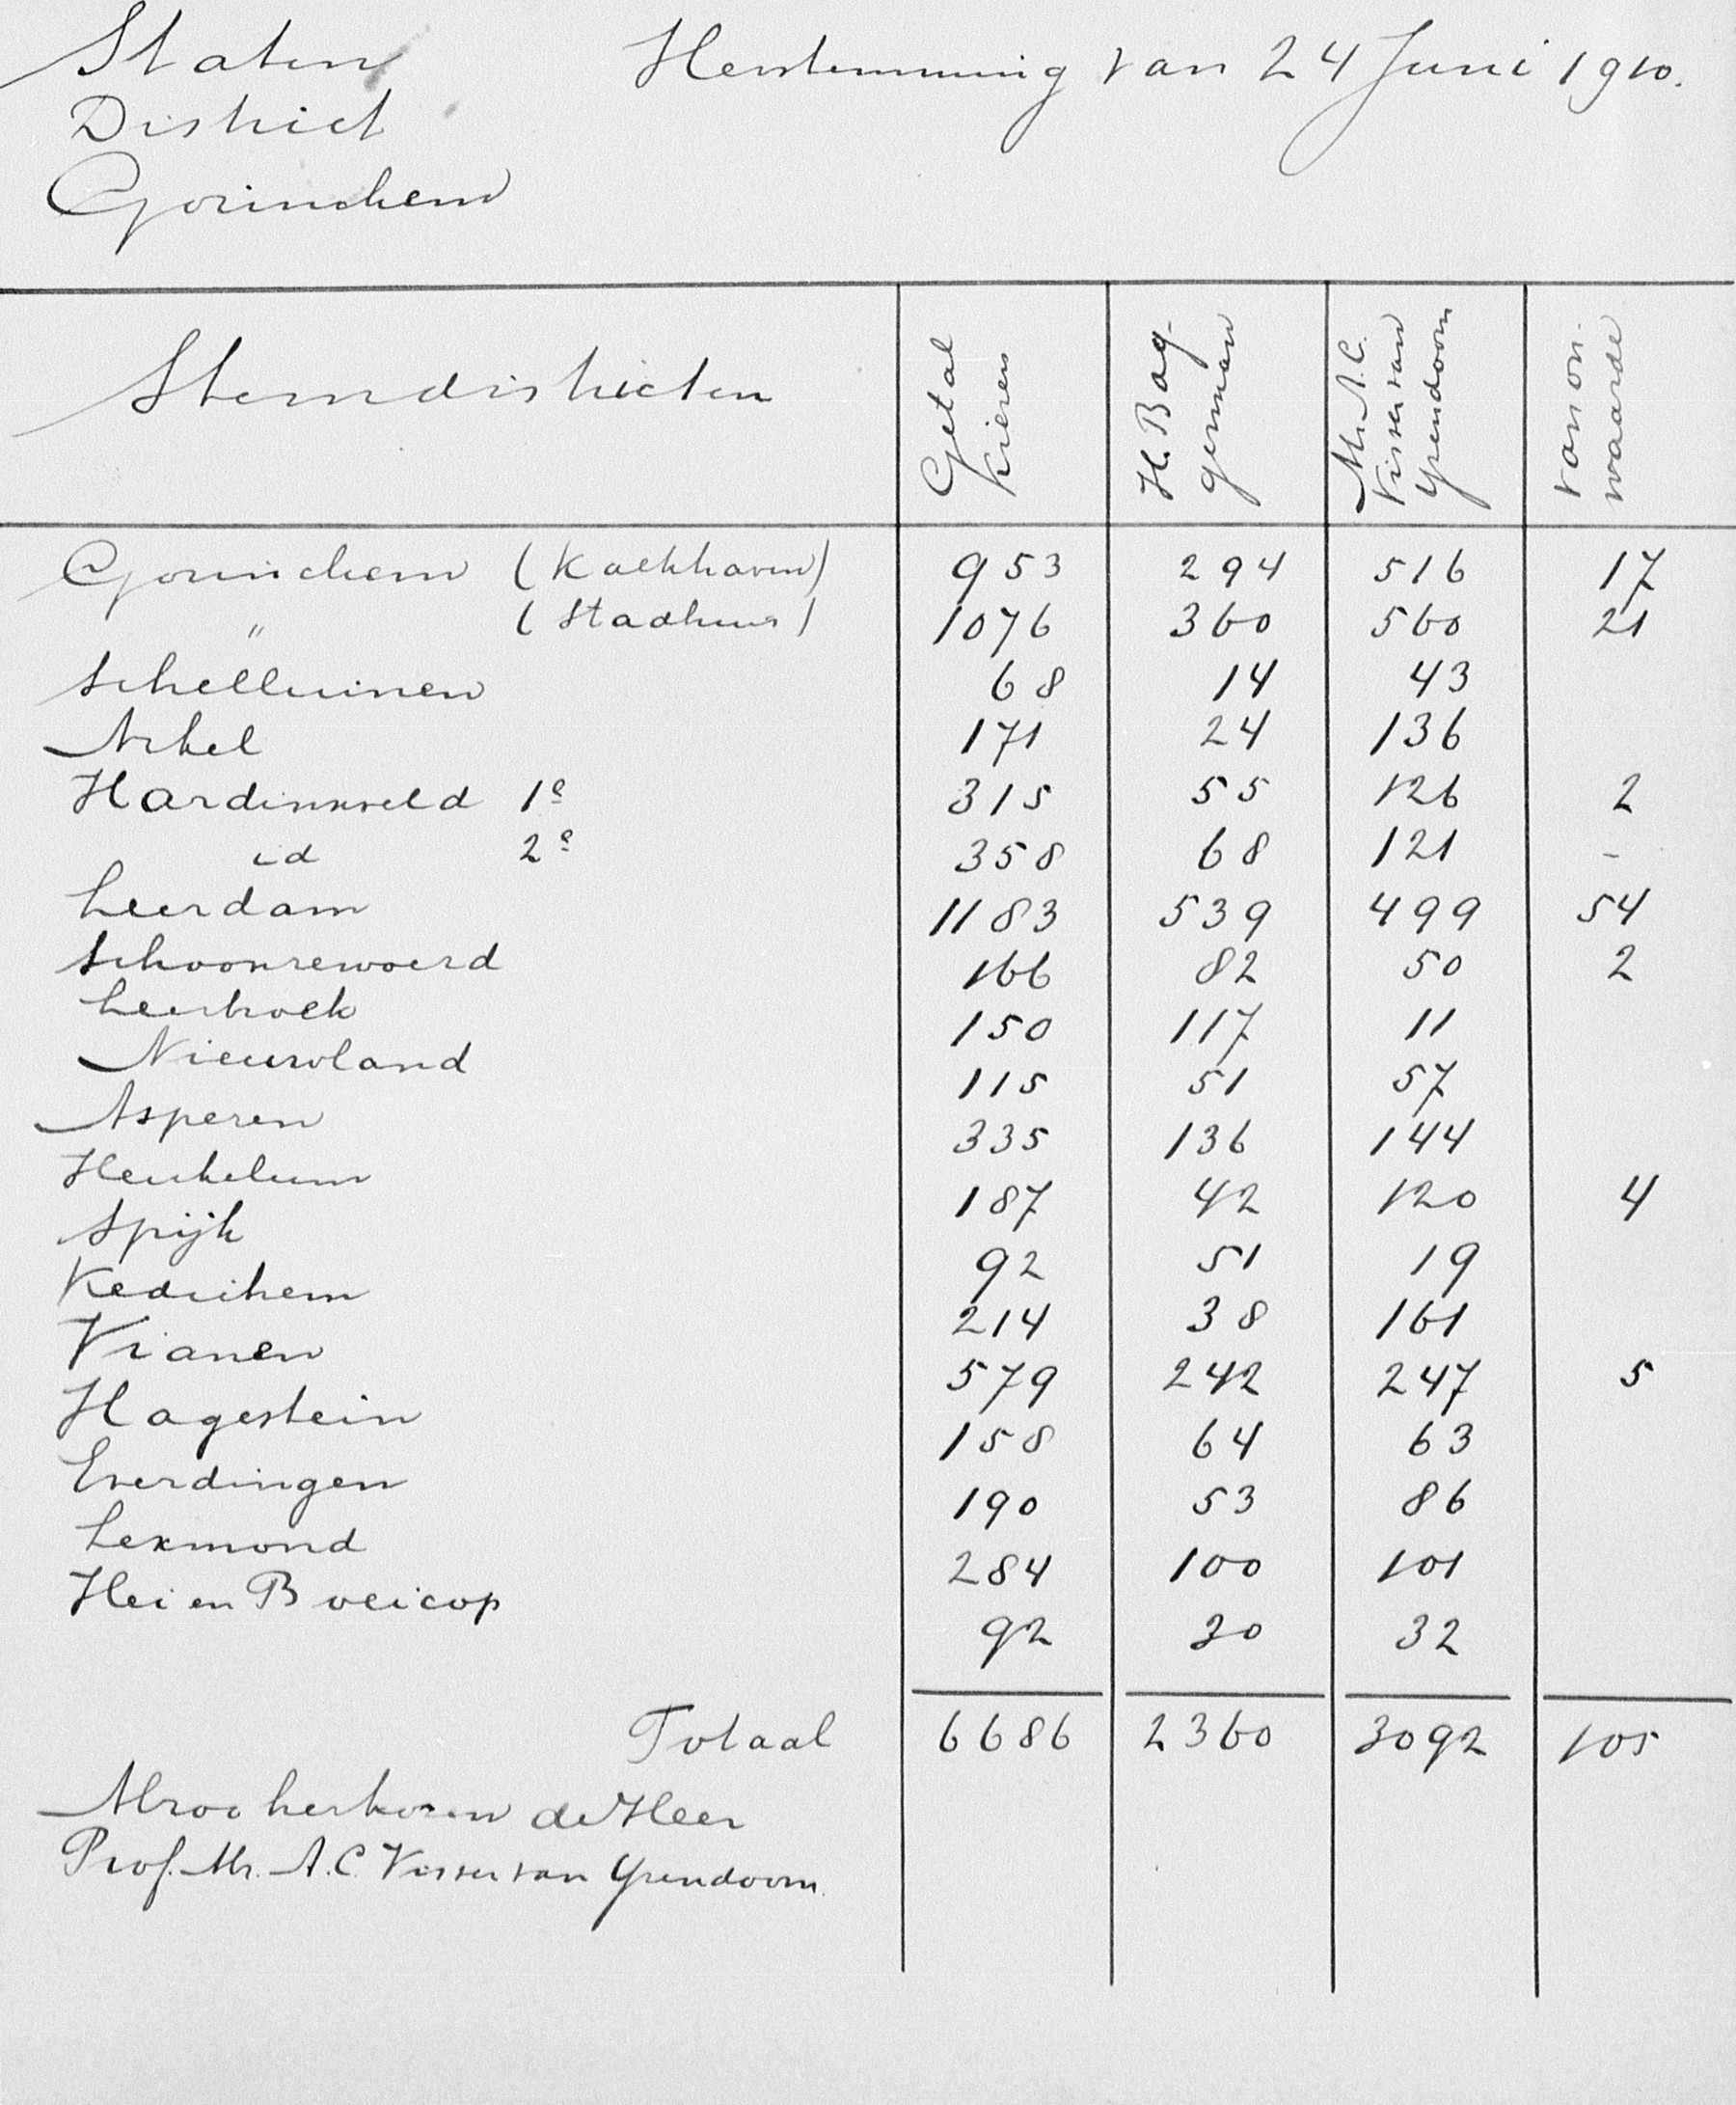 Staten Herstemming van 24 Juni 1910.
District
Gorinchem
Stemdistricten Getal kiezers H. Bag-german Mr. A.C. Visser van Yzendoorn van on-waarde
Gorinchem (Kalkhaven) 953 294 516 17
" (Stadhuis) 1076 360 560 21
Schelluinen 68 14 43
Arkel 171 24 136
Hardinxveld 1e 315 55 126 2
id 2e 358 68 121 -
Leerdam 1183 539 499 54
Schoonrewoerd 166 82 50 2
Leerbroek 150 117 11
Nieuwland 115 51 57
Asperen 335 136 144
Heukelum 187 42 120 4
Spijk 92 51 19
Kedichem 214 38 161
Vianen 579 242 247 5
Hagestein 158 64 63
Everdingen 190 53 86
Lexmond 284 100 101
Hei en Boeicop 92 30 32
Totaal 6686 2360 3092 105
Alzoo herkozen de Heer
Prof. Mr. A.C. Visser van Yzendoorn.